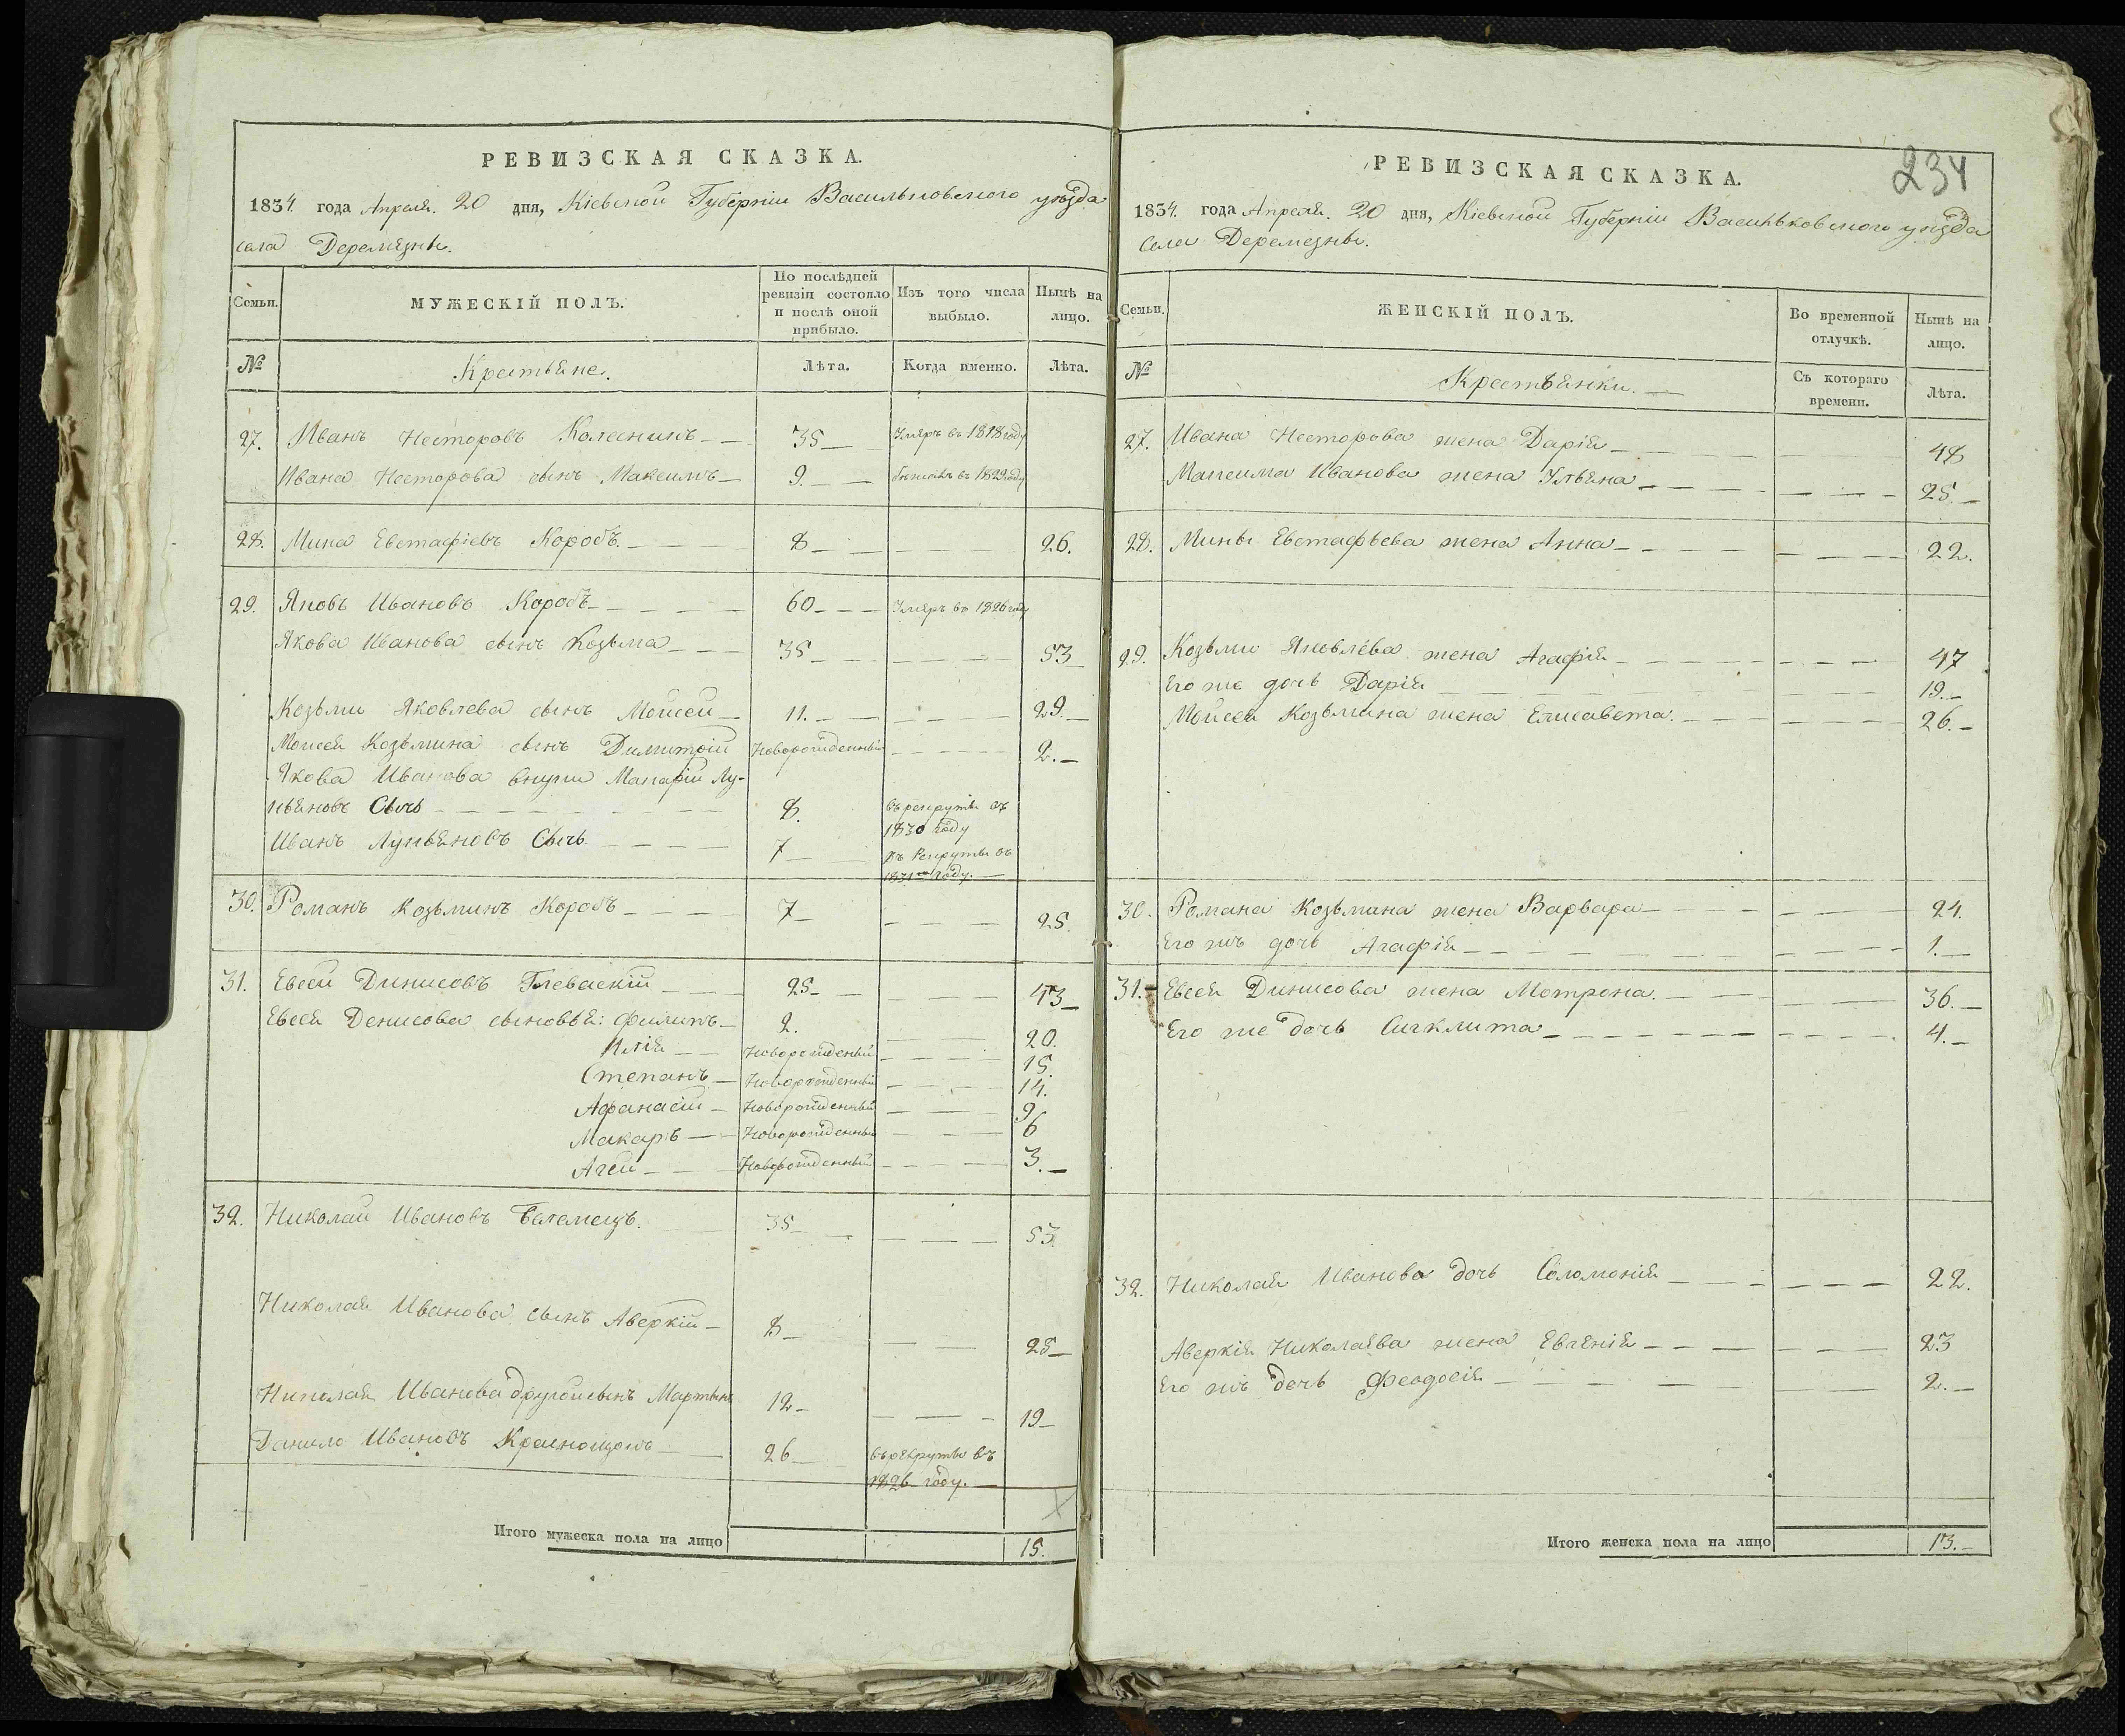 РЕВИЗСКАЯ СКАЗКА.
1834. года Апреля. 20 дня, Кіевской Губерніи Васильковского уѣзда
села Деремезны.
Семьи.
МУЖЕСКІЙ ПОЛЪ.
По послѣдней ревизіи состояло и послѣ оной прибыло.
Изъ того числа выбыло.
Нынѣ на лицо.
№
Крестьяне.
Лѣта.
Когда именно.
Лѣта.
27. Иванъ Несторовъ Колесникъ 35 Умеръ въ 1818 году
Ивана Несторова сынъ Максимъ 9. въ 1829 году
28. Мина Евстафіевъ Коробъ. 8 26.
29. Яковъ Ивановъ Коробъ 60 Умеръ въ 1826 году
Якова Иванова сынъ Козьма 35 53
Козьми Яковлева сынъ Моисей 11. 29.
Моисея Козьмина сынъ Димитрій Новорожденный 2.
Якова Иванова внуки Макарій Лу-
кьяновъ Сычь 8. въ рекруты въ
1830 году
Иванъ Лукьяновъ Сычь 7 въ Рекруты въ
1831 году.
30. Романъ Козьминъ Коробъ 7 25.
31. Евсей Динисовъ Глеваскій 25 43
Евсея Денисова сыновья: Филипъ 2. 20.
Илія Новорожденый 15.
Степанъ Новорожденный 14.
Афанасій Новорожденный 9
Макаръ Новорожденный 6
Агей Новорожденный 3.
32. Николай Ивановъ 35 53.
Николая Иванова сынъ Аверкій 8 25
Николая Иванова другой сынъ Мартынъ 12 19
Данило Ивановъ 26 въ рекруты въ
1826 году.
Итого мужеска пола на лицо 15.
РЕВИЗСКАЯ СКАЗКА.
234
1834. года Апреля. 20 дня, Кіевской Губерніи Васильковского уѣзда
села Деремезны.
Семьи.
ЖЕНСКІЙ ПОЛЪ.
Во временной отлучкѣ.
Нынѣ на лицо.
№
Крестьянки.
Съ котораго времени.
Лѣта.
27. Ивана Несторова жена Дарія 48
Максима Иванова жена Ульяна 25.
28. Мины Евстафьева жена Анна 22.
29. Козьми Яковлева жена Агафія 47
Его же дочь Дарія 19.
Моисея Козьмина жена Елисавета. 26.
30. Романа Козьмина жена Варвара 24.
Его жъ дочь Агафія 1.
31. Евсея Динисова жена Мотрона. 36.
Его же дочь 4.
32. Николая Иванова дочь Соломонія 22.
Аверкія Николаева жена Евгенія 23
Его жъ дочь Феодосія 2.
Итого женска пола на лицо 13.